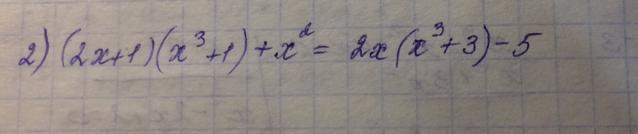 2) (2x+1)(x³+1)+x²= 2x(x³+3)-5